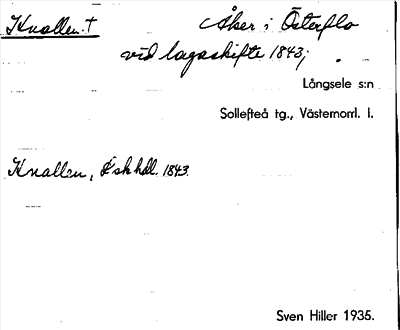 Knallen. † Åker i Österflo
vid lagaskifte 1843;
Långsele s:n
Sollefteå tg., Västernorrl. l.
Knallen, skhdl. 1843.
Sven Hiller 1935.